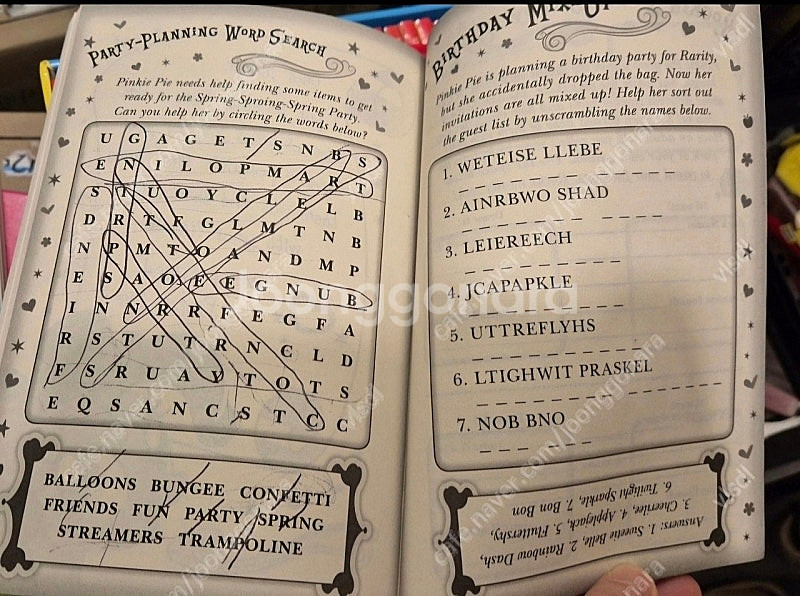 PARTY-PLANNING WORD SEARCH
Pinkie Pie needs help finding some items to get
ready for the Spring-Sproing-Spring Party.
Can you help her by circling the words below?
U G A G E T S N B S
E N I L O P M A R T
S T U O Y C L E L B
D R T F G L M T N B
N P M T O A N D M P
E S A O F E G N U B
I N N R R F E G F A
R S T U T R N C L D
F S R U A Y T O T S
E Q S A N C S T C C
BALLOONS BUNGEE CONFETTI
FRIENDS FUN PARTY SPRING
STREAMERS TRAMPOLINE
BIRTHDAY MIX-UP
Pinkie Pie is planning a birthday party for Rarity,
but she accidentally dropped the bag. Now her
invitations are all mixed up! Help her sort out
the guest list by unscrambling the names below.
1. WETEISE LLEBE
2. AINRBWO SHAD
3. LEIEREECH
4. JCAPAPKLE
5. UTTREFLYHS
6. LTIGHWIT PRASKEL
7. NOB BNO
Answers: 1. Sweetie Belle, 2. Rainbow Dash,
3. Cheerilee, 4. Applejack, 5. Fluttershy,
6. Twilight Sparkle, 7. Bon Bon
Joonggonara
cafe.naver.com/joonggonara
vlsdl